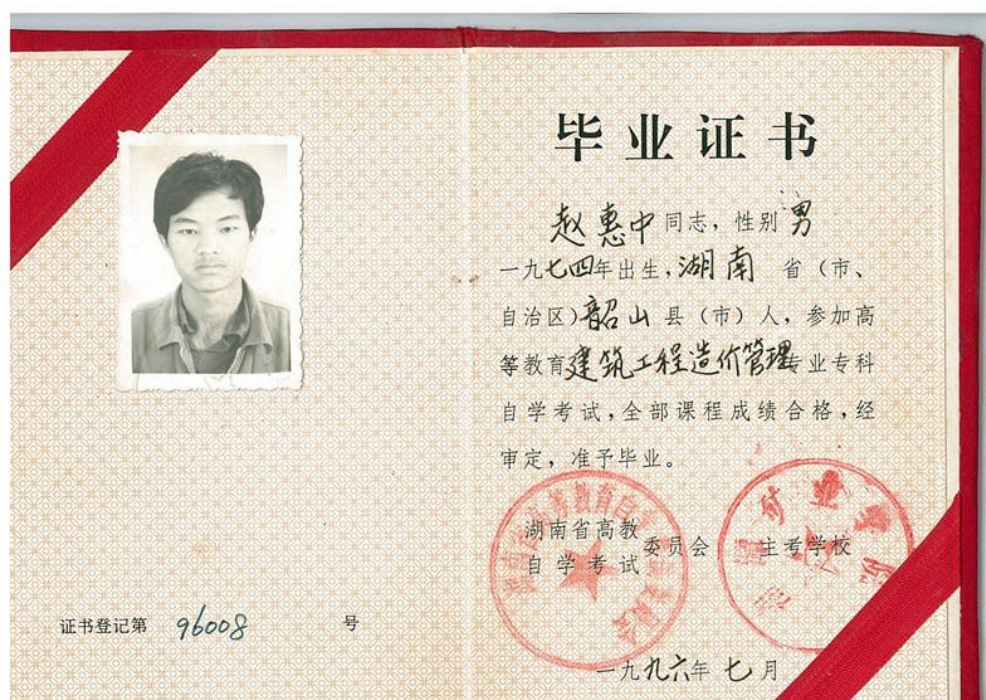 毕业证书
赵惠中同志，性别男
一九七四年出生，湖南省（市、
自治区）韶山县（市）人，参加高
等教育建筑工程造价管理专业专科
自学考试，全部课程成绩合格，经
审定，准予毕业。
湖南省高教
自学考试委员会 主考学校
一九九六年七月
证书登记第 96008 号